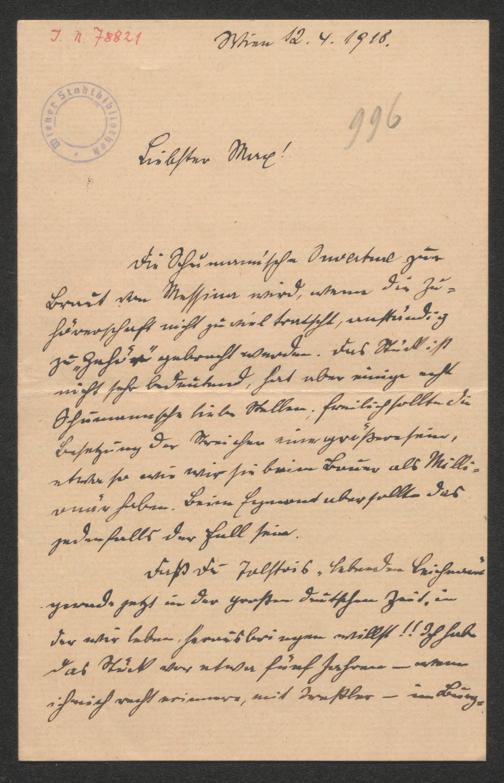 J. N. 78821
Wien 12. 4. 1918.
Wiener Stadtbibliothek
996
Liebster Max!
Die Schumannsche Ouverture zur
Braut von Messina wird, wenn die Zu-
hörerschaft nicht zu viel tratscht, anständig
zu „Gehör“ gebracht werden. Das Stück ist
nicht sehr bedeutend, hat aber einige echt
Schumannsche liebe Stellen. Freilich sollte die
Besetzung der Streicher eine größere sein,
etwa so wie wir sie beim Bauer als Milli-
onär haben. Beim Egmont aber sollte das
jedenfalls der Fall sein.
Daß Du Tolstois „lebenden Leichnam
gerade jetzt in der großen deutschen Zeit, in
der wir leben, herausbringen willst!! Ich habe
das Stück vor etwa fünf Jahren – wenn
ich mich recht erinnere, mit Treßler – im Burg-